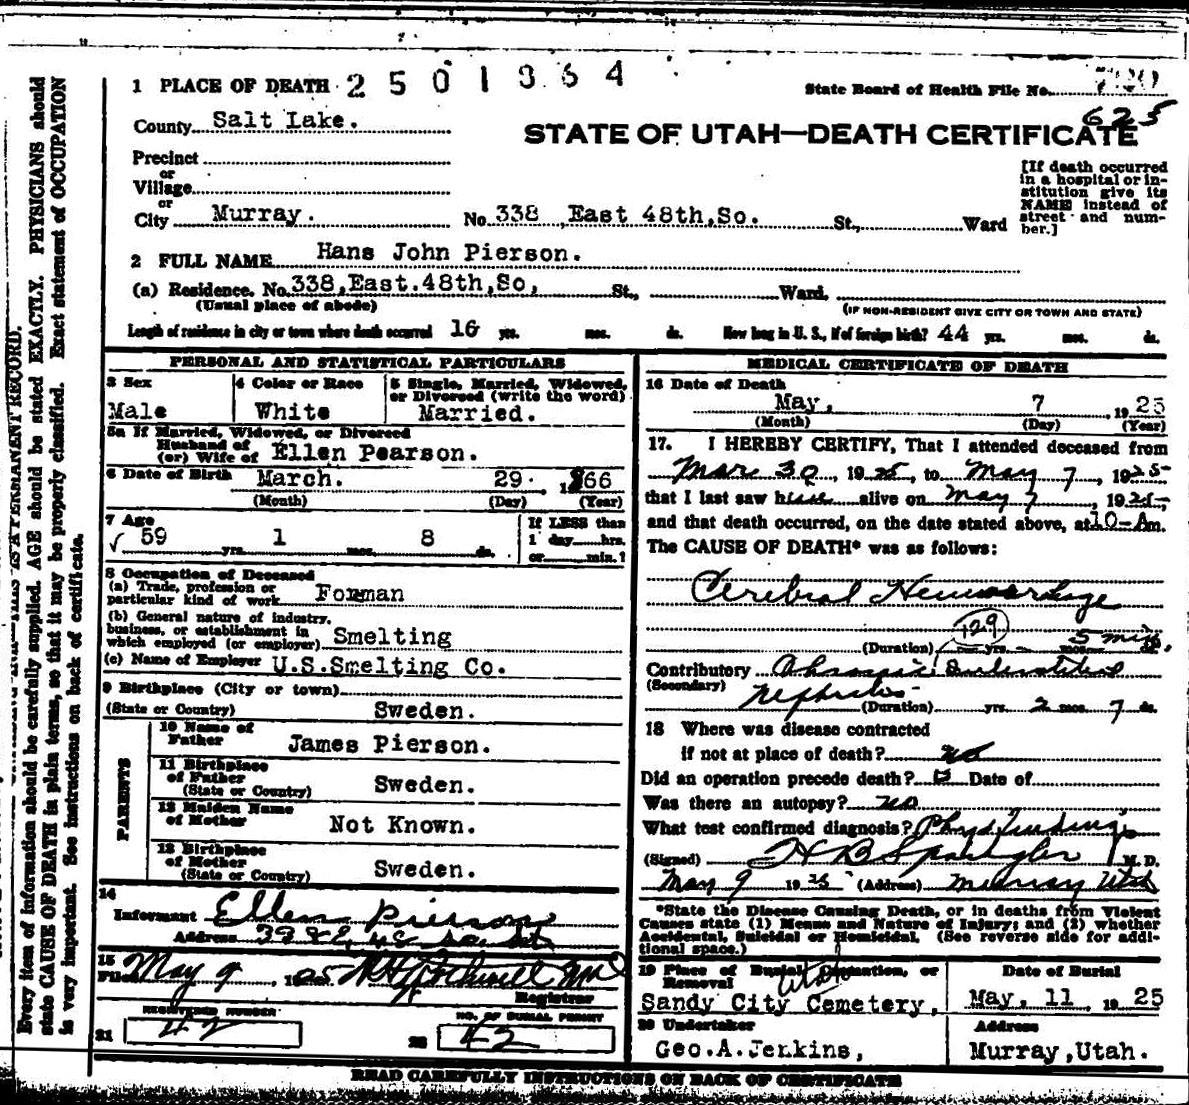 1 PLACE OF DEATH 2501364
State Board of Health File No.
625
County Salt Lake.
STATE OF UTAH—DEATH CERTIFICATE
Precinct
or
Village
or
City Murray. No. 338 East 48th,So. St., Ward
[If death occurred
in a hospital or in-
stitution give its
NAME instead of
street and num-
ber.]
2 FULL NAME Hans John Pierson.
(a) Residence. No. 338,East.48th,So, St., Ward.
(Usual place of abode) (IF NON-RESIDENT GIVE CITY OR TOWN AND STATE)
Length of residence in city or town where death occurred 16 yrs. mos. ds. How long in U. S., if of foreign birth? 44 yrs. mos. ds.
PERSONAL AND STATISTICAL PARTICULARS
3 Sex 4 Color or Race 5 Single, Married, Widowed,
or Divorced (write the word)
Male White Married.
5a If Married, Widowed, or Divorced
Husband of
(or) Wife of Ellen Pearson.
6 Date of Birth March. 29. 1866
(Month) (Day) (Year)
7 Age If LESS than
59 yrs. 1 mos. 8 ds. 1 day hrs.
or min.?
8 Occupation of Deceased
(a) Trade, profession or
particular kind of work Forman
(b) General nature of industry,
business, or establishment in
which employed (or employer) Smelting
(c) Name of Employer U.S.Smelting Co.
9 Birthplace (City or town)
(State or Country) Sweden.
PARENTS
10 Name of
Father James Pierson.
11 Birthplace
of Father
(State or Country) Sweden.
12 Maiden Name
of Mother Not Known.
13 Birthplace
of Mother
(State or Country) Sweden.
14
Informant Ellen Pierson
Address
15
Filed May 9, 1925
Registrar
REGISTERED NUMBER NO. OF BURIAL PERMIT
21 42 22 42
MEDICAL CERTIFICATE OF DEATH
16 Date of Death
May, 7, 1925
(Month) (Day) (Year)
17. I HEREBY CERTIFY, That I attended deceased from
Mar 30, 1925, to May 7, 1925
that I last saw him alive on May 7, 1925,
and that death occurred, on the date stated above, at 10-Am.
The CAUSE OF DEATH* was as follows:
Cerebral Hemorrhage
129
(Duration) yrs. mos. 5 min.
Contributory Chronic Interstitial
(Secondary) Nephritis
(Duration) yrs. 2 mos. 7 ds.
18 Where was disease contracted
if not at place of death? no
Did an operation precede death? Date of
Was there an autopsy? no
What test confirmed diagnosis? Phys findings
(Signed) H B Spangler M. D.
May 9 1925 (Address) Murray Utah
*State the Disease Causing Death, or in deaths from Violent
Causes state (1) Means and Nature of Injury; and (2) whether
Accidental, Suicidal or Homicidal. (See reverse side for addi-
tional space.)
19 Place of Burial, Cremation, or
Removal Date of Burial
Utah
Sandy City Cemetery, May, 11 1925
20 Undertaker Address
Geo.A.Jenkins, Murray,Utah.
READ CAREFULLY INSTRUCTIONS ON BACK OF CERTIFICATE
Every item of information should be carefully supplied. AGE should be stated EXACTLY. PHYSICIANS should
state CAUSE OF DEATH in plain terms, so that it may be properly classified. Exact statement of OCCUPATION
is very important. See instructions on back of certificate.